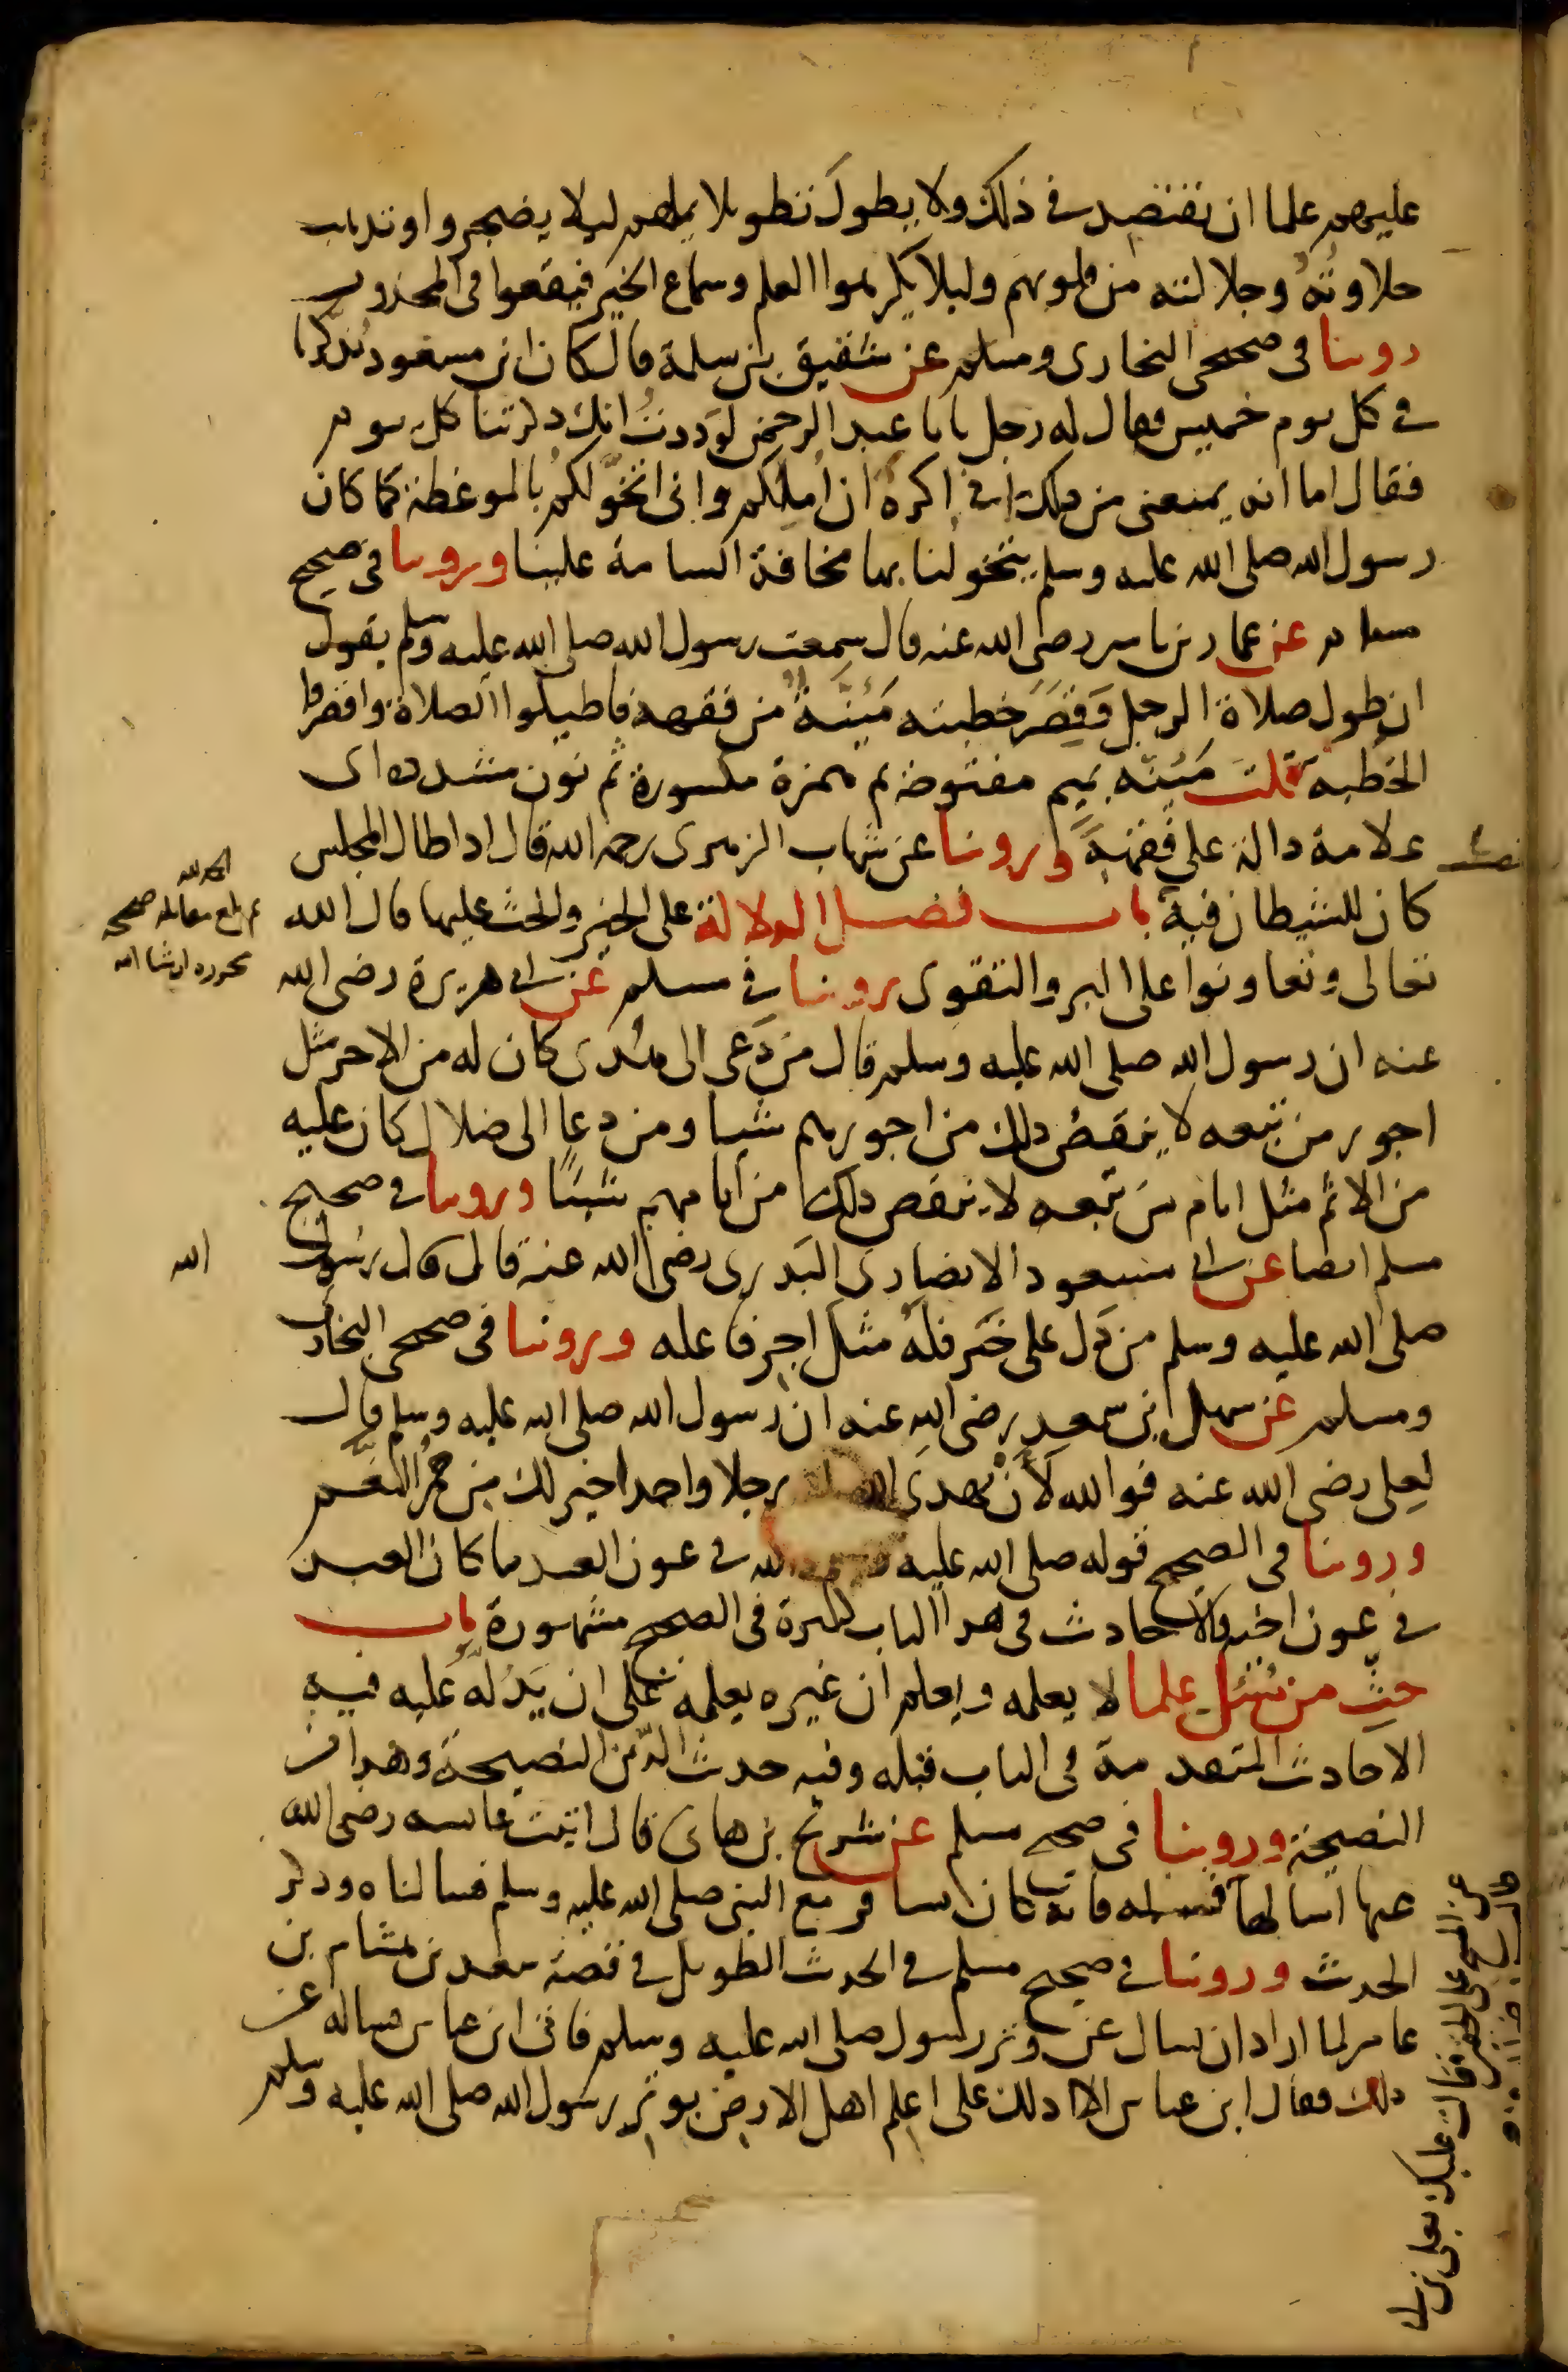 عليهم علما ان يقتصد في ذلك ولا يطول تطويلا يملهم ليلا يضجروا وتذهب
حلاوته وجلالته من قلوبهم وليلا يكرهوا العلم وسماع الخير فيقعوا في المحذور
روينا في صحيحي البخاري ومسلم عن شقيق بن سلمة قال كان ابن مسعود يذكرنا
في كل يوم خميس فقال له رجل يابا عبد الرحمن لوددت انك ذكرتنا كل يوم
فقال اما انه يمنعني من ذلك اني اكره ان املكم واني اتخولكم بالموعظة كما كان
رسول الله صلى الله عليه وسلم يتخولنا بها مخافة السامة علينا وروينا في صحيح
مسلم عن عمار بن ياسر رضي الله عنه قال سمعت رسول الله صلى الله عليه وسلم يقول
ان طول صلاة الرجل وقصر خطبته مئنة من فقهه فاطيلوا الصلاة واقصروا
الخطبة قلت مئنة بميم مفتوحة ثم همزة مكسورة ثم نون مشددة اي
علامة دالة على فقهه وروينا عن شهاب الزهري رحمه الله قال اذا طال المجلس
كان للشيطان فيه باب فضل الدلالة على الخير والحث عليها قال الله
تعالى وتعاونوا على البر والتقوى روينا في مسلم عن ابي هريرة رضي الله
عنه ان رسول الله صلى الله عليه وسلم قال من دعى الى هدى كان له من الاجر مثل
اجور من تبعه لا ينقص ذلك من اجورهم شيا ومن دعا الى ضلال كان عليه
من الاثم مثل اثام من تبعه لا ينقص ذلك من اثامهم شيئا وروينا في صحيح
مسلم ايضا عن ابي مسعود الانصاري البدري رضي الله عنه قال قال رسول
الله
صلى الله عليه وسلم من دل على خير فله مثل اجر فاعله وروينا في صحيحي البخاري
ومسلم عن سهل ابن سعد رضي الله عنه ان رسول الله صلى الله عليه وسلم قال
لعلي رضي الله عنه فوالله لأن يهدي الله رجلا واحدا خير لك من حمر النعم
وروينا في الصحيح قوله صلى الله عليه والله في عون العبد ما كان العبد
في عون اخيه والاحاديث في هذا الباب كثيرة في الصحيح مشهورة باب
حث من سئل علما لا يعلمه ويعلم ان غيره يعلمه على ان يدله عليه فيه
الاحاديث المتقدمة في الباب قبله وفيه حديث الدين النصيحة وهذا من
النصيحة وروينا في صحيح مسلم عن شريح بن هاني قال اتيت عائشة رضي الله
عنها اسالها
عن المسح على الخفين فقالت عليك بعلي بن ابي
فسله فانه كان يسافر مع النبي صلى الله عليه وسلم فسالناه وذكر
الحديث وروينا في صحيح مسلم في الحديث الطويل في قصة سعد بن هشام بن
عامر لما اراد ان يسال عن وتر رسول صلى الله عليه وسلم فاتى ابن عباس فساله عن
ذلك فقال ابن عباس الا ادلك على اعلم اهل الارض بوتر رسول الله صلى الله عليه وسلم
الحمد لله
ثم بلغ مقابلة صحيحة
محررة ان شا الله